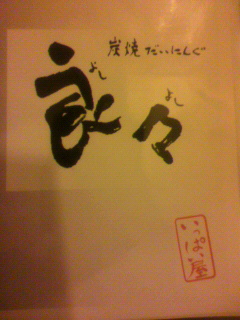 炭焼だいにんぐ
良々
よし
よし
いっぱい屋